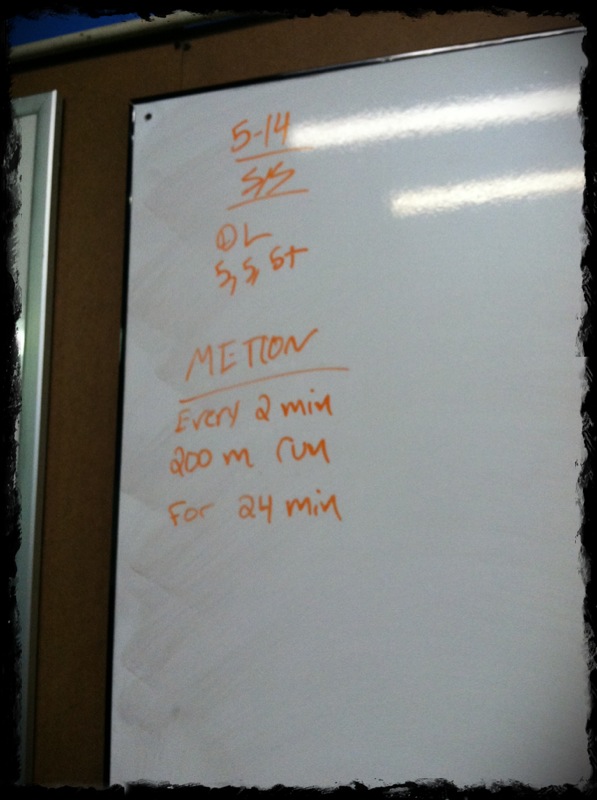 5-14
S/S
① L
5, 5, 5+
METCON
Every 2 min
200 m run
For 24 min